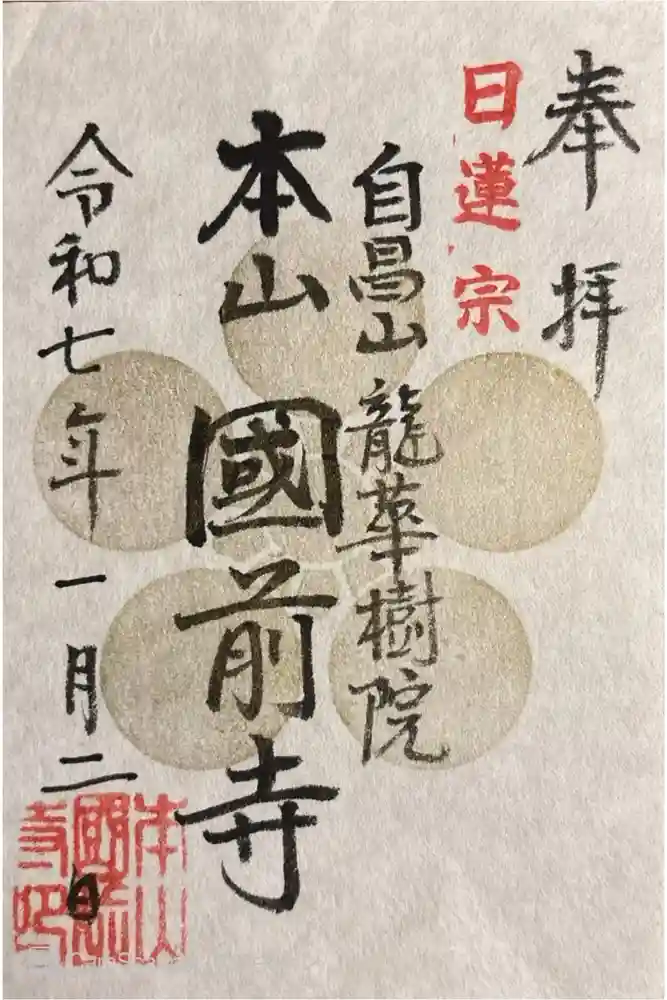 奉拝
日蓮宗
自昌山 龍華樹院
本山 國前寺
令和七年一月二日
本山
國前
寺印